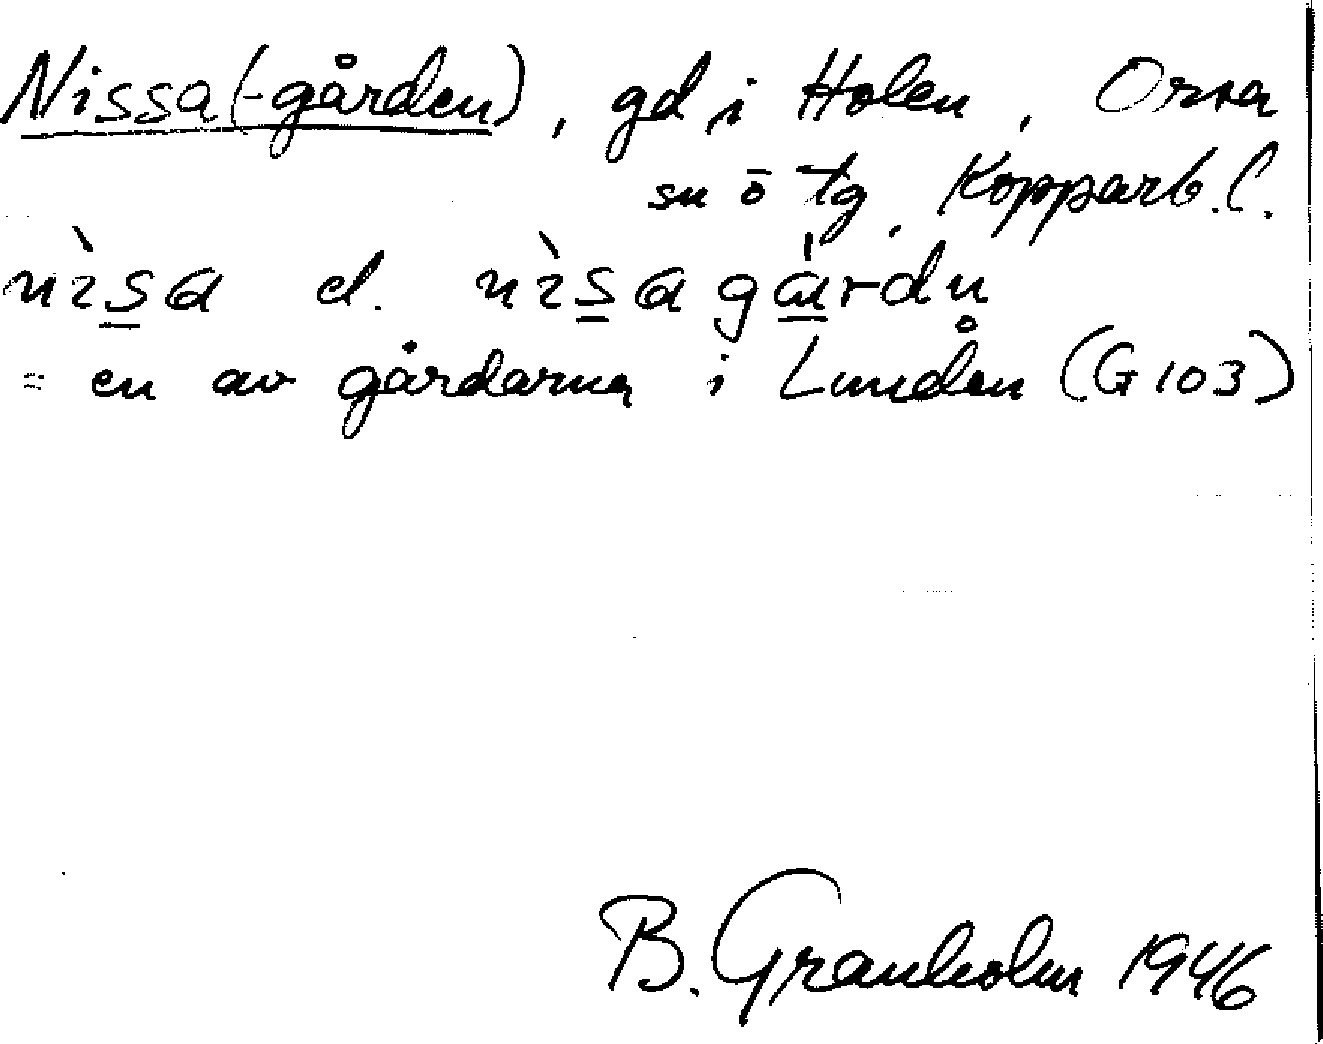 Nissa(-gården), gd i Holen, Orsa
sn ö tg, Kopparb. l.
nìsa el. nìsagárdn
= en av gårdarna i Lundén (G 103)
B. Granholm 1946